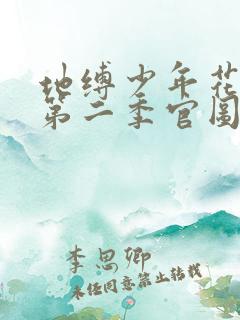 地缚少年花
第二季官图
李思卿
未经同意禁止转载